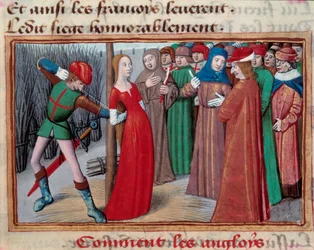 Et ainsi les francoys leuerent
ledit siege honnorablement.
Comment les angloys